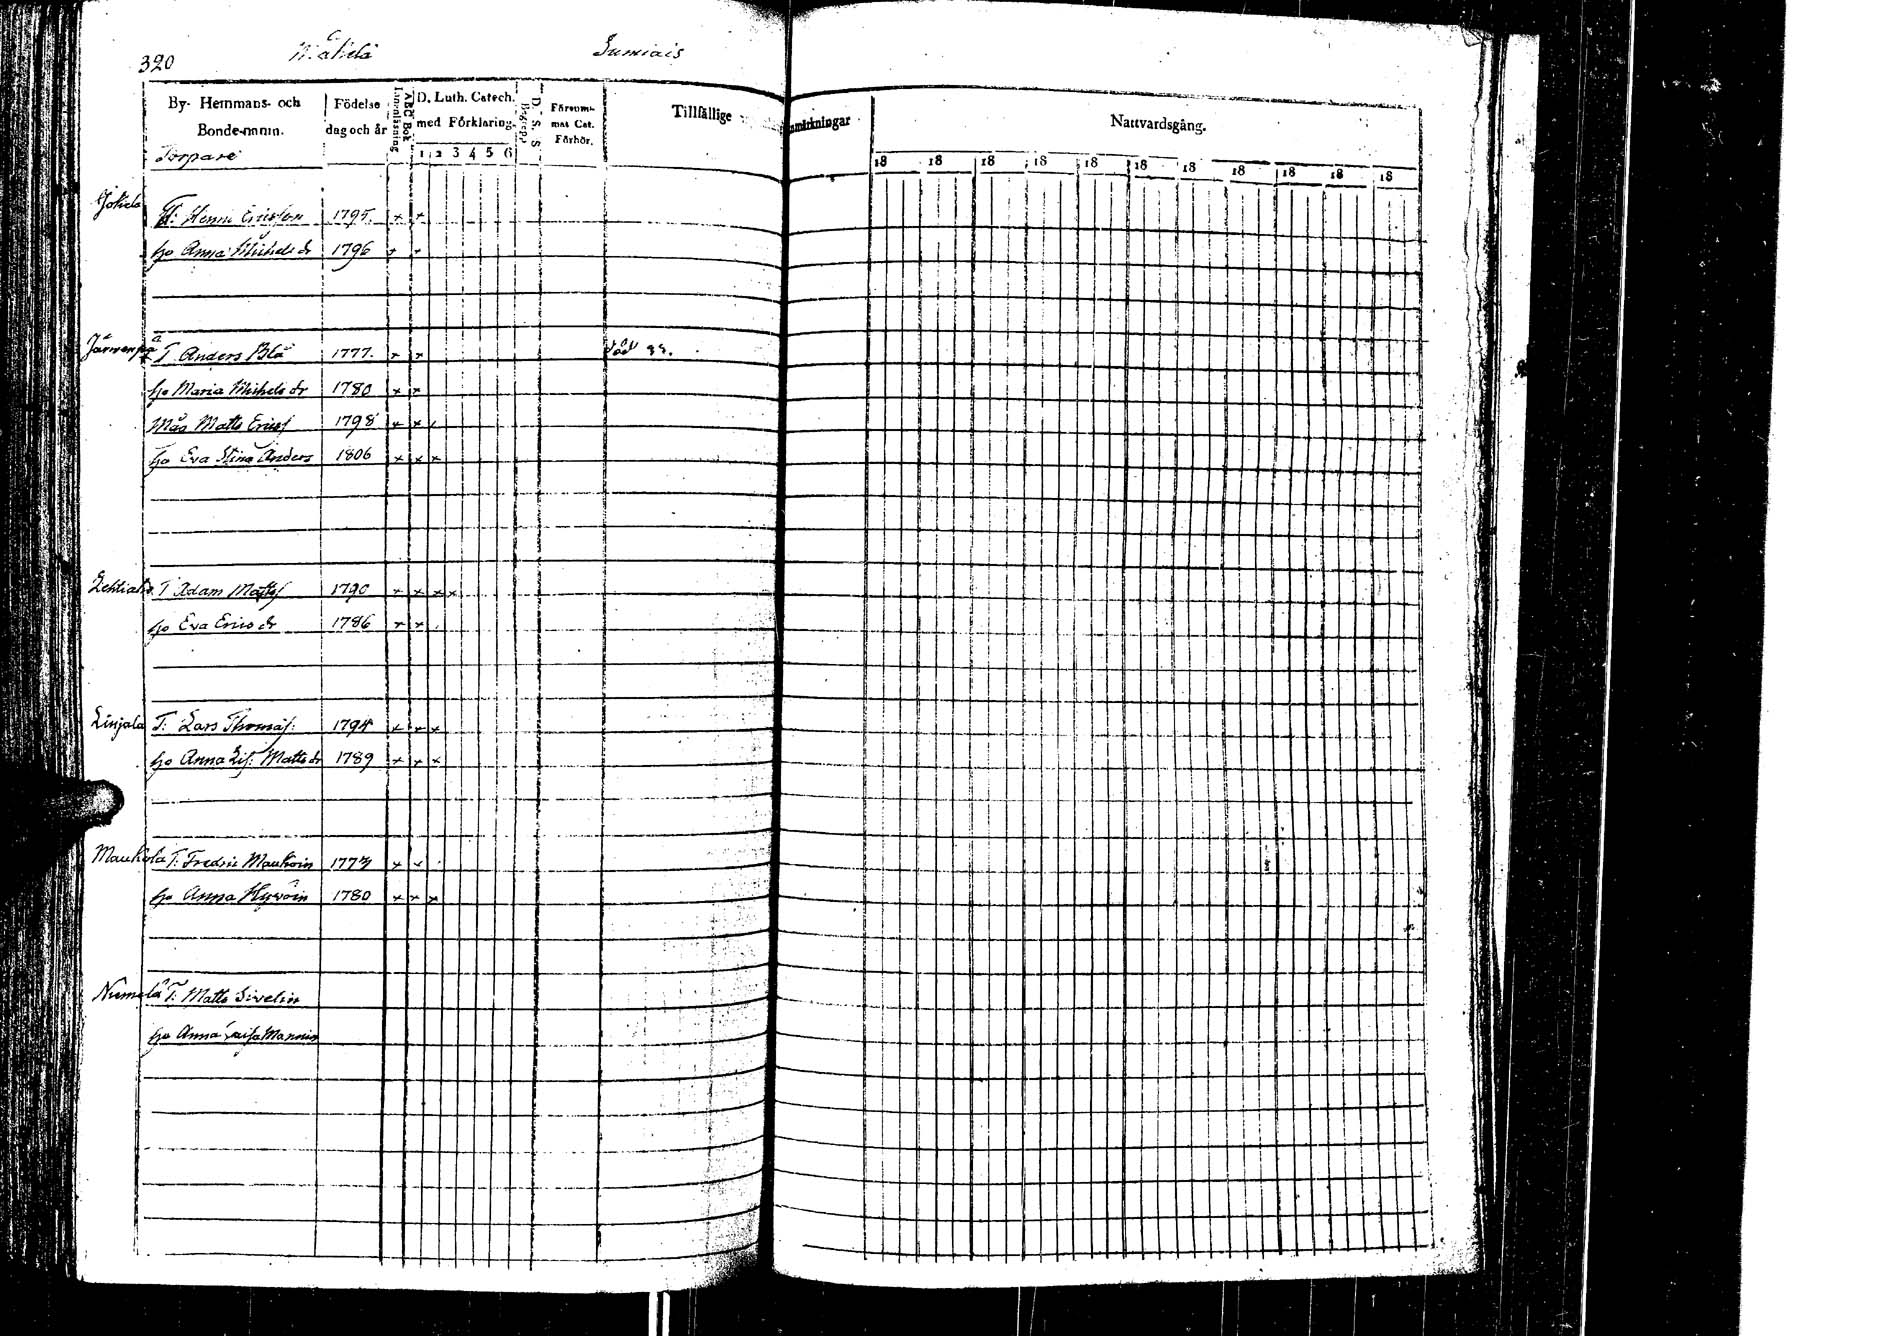 320 Sumiais
By- Hemmans- och Bonde-namn. Födelse dag och år Innanläsning ABC Bok D. Luth. Catech. med Förklaring. 1 2 3 4 5 6 D. S. S. Begrepp Försummat Cat. Förhör. Tillfällige Anmärkningar Nattvardsgång.
Torpare 18 18 18 18 18 18 18 18 18 18 18
Jokela T: Henric Ericsson 1795. × ×
ho Anna Michels dr 1796 × ×
Järwenpää T. Anders Blå 1777. × × död 33.
ho Maria Michels dr 1780 × ×
Måg Matts Erics 1798 × ×
ho Eva Stina Anders 1806 × × ×
T Adam Matts 1790 × × × ×
ho Eva Erics dr 1786 × ×
Linjala T: Lars Thomas: 1794 × × ×
ho Anna Lis: Matts dr 1789 × × ×
Maukola T: Fredric Maukoin 1773 × ×
ho Anna Hyvöin 1780 × × ×
Niemelä T: Matts Sivelin
ho Anna Caisa Mannin